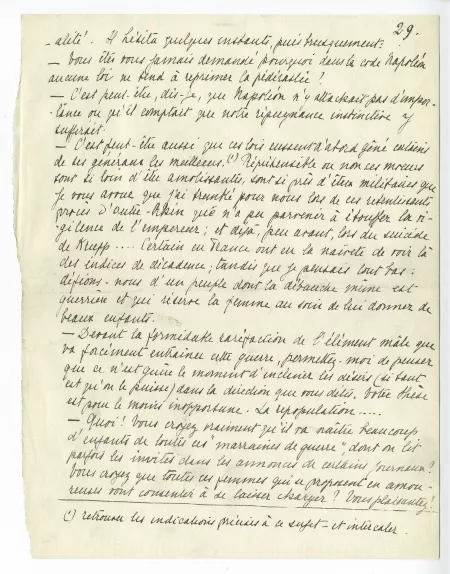 29.
- alité. Il hésita quelques instants, puis brusquement:
— Vous êtes vous jamais demandé pourquoi dans le code Napoléon
aucune loi ne tend à réprimer la pédérastie?
— C'est peut-être, dis-je, que Napoléon n'y attachait pas d'impor-
- tance ou qu'il comptait que notre répugnance instinctive y
suffirait.
— C'est peut-être aussi que ces lois eussent d'abord gêné certains
de ses généraux les meilleurs. (1) Répréhensible ou non ces mœurs
sont si loin d'être amolissantes, sont si près d'être militaires que
je vous avoue que j'ai tremblé pour nous lors de ces retentissants
procès d'outre-Rhin que n'a pu parvenir à étouffer la vi-
- gilence de l'empereur; et déjà, peu avant, lors du suicide
de Krupp .... Certains en France ont eu la naïveté de voir là
des indices de décadence, tandis que je pensais tout bas:
défions-nous d'un peuple dont la débauche même est
guerrière et qui réserve la femme au soin de lui donner de
beaux enfants.
— Devant la formidable raréfaction de l'élément mâle que
va forcément entraîner cette guerre, permettez-moi de penser
que ce n'est guère le moment d'incliner les désirs (si tant
est qu'on le puisse) dans la direction que vous dites. Votre thèse
est pour le moins inopportune. La repopulation .....
— Quoi! Vous croyez vraiment qu'il va naître beaucoup
d'enfants de toutes ces "marraines de guerre", dont on lit
parfois les invites dans les annonces de certains journaux?
Vous croyez que toutes ces femmes qui se proposent en amou-
reuses vont consentir à se laisser charger? Vous plaisantez!
(1) retrouver les indications précises à ce sujet - et intercaler.